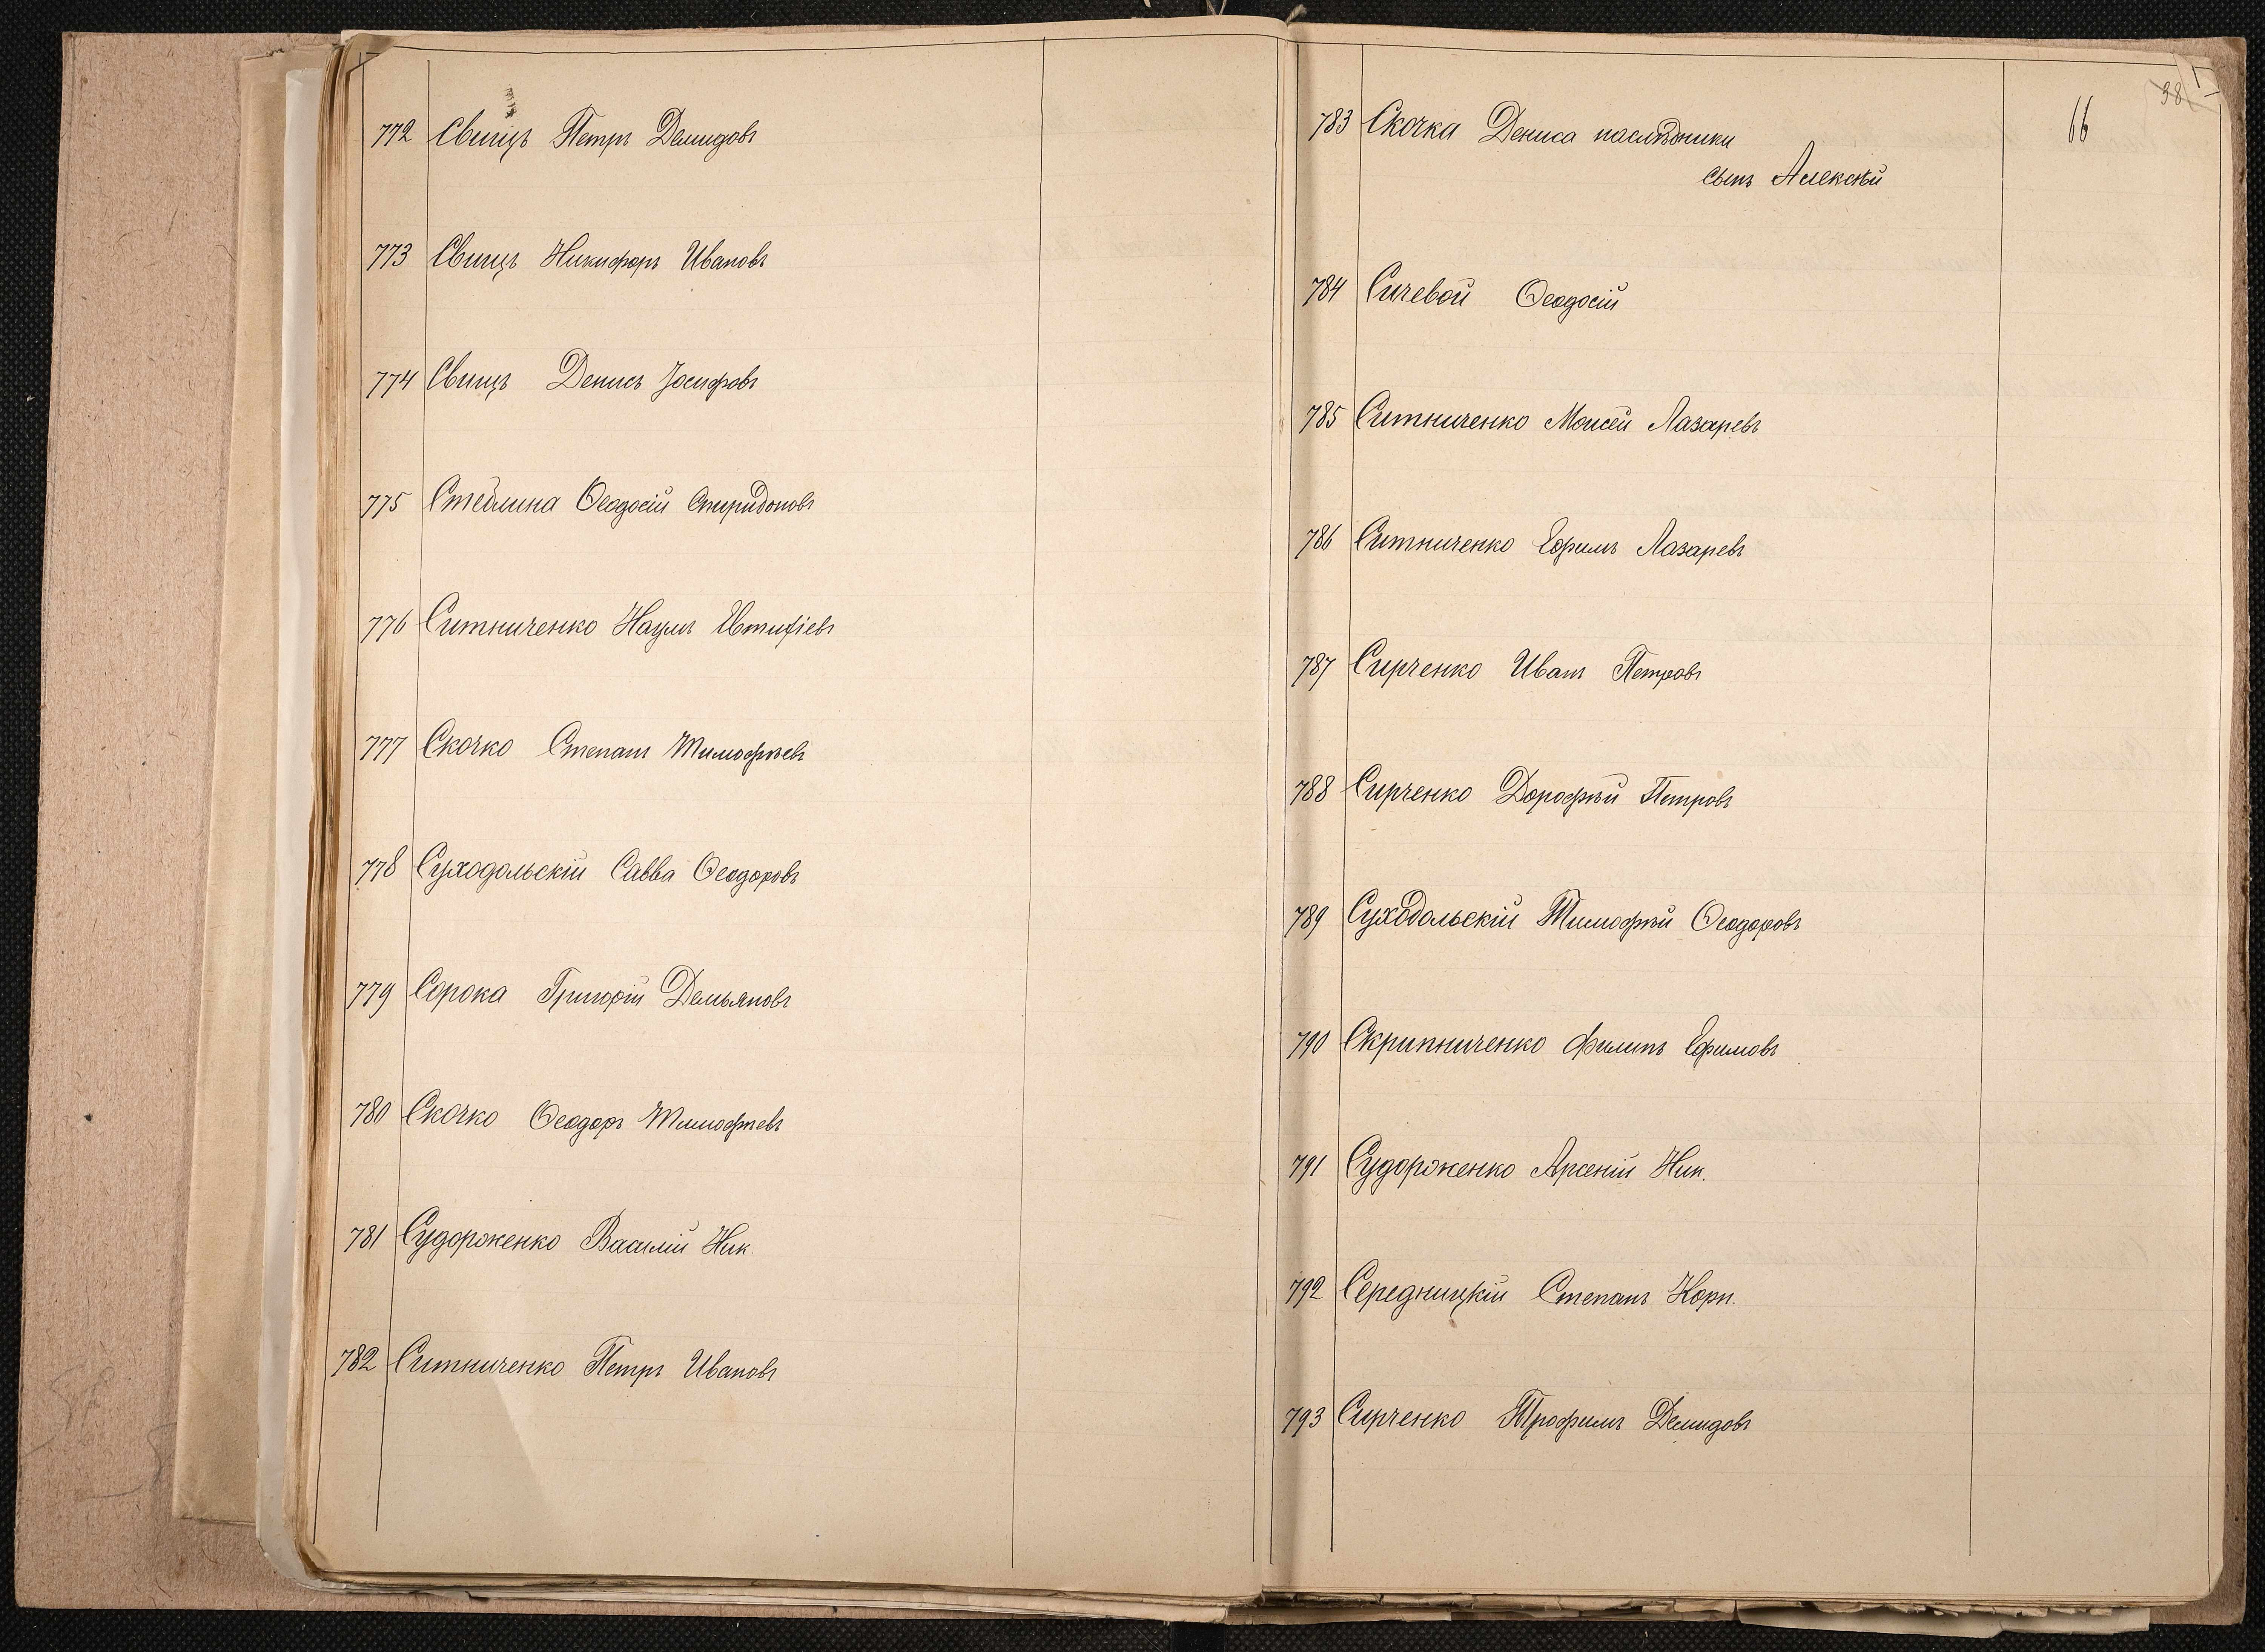 772 Свищъ Петръ Демидовъ
773 Свищъ Никифоръ Ивановъ
774 Свищъ Денисъ Іосифовъ
775 Стеблина Ѳеодосій Спиридоновъ
776 Ситниченко Наумъ
777 Скочко Степанъ Тимофѣевъ
778 Суходольскій Савва Ѳеодоровъ
779 Сорока Григорій Демьяновъ
780 Скочко Ѳеодоръ Тимофѣевъ
781 Судороженко Василій Ник.
782 Ситниченко Петръ Ивановъ
66
783 Скочка Дениса наслѣдники
сынъ Алексѣй
784 Сичевой Ѳеодосій
785 Ситниченко Моисей Лазаревъ
786 Ситниченко Ефимъ Лазаревъ
787 Сирченко Иванъ Петровъ
788 Сирченко Дорофѣй Петровъ
789 Суходольскій Тимофѣй Ѳеодоровъ
790 Скрипниченко Филипъ Ефимовъ
791 Судороженко Арсеній Ник.
792 Середницкій Степанъ Корн.
793 Сирченко Трофимъ Демидовъ